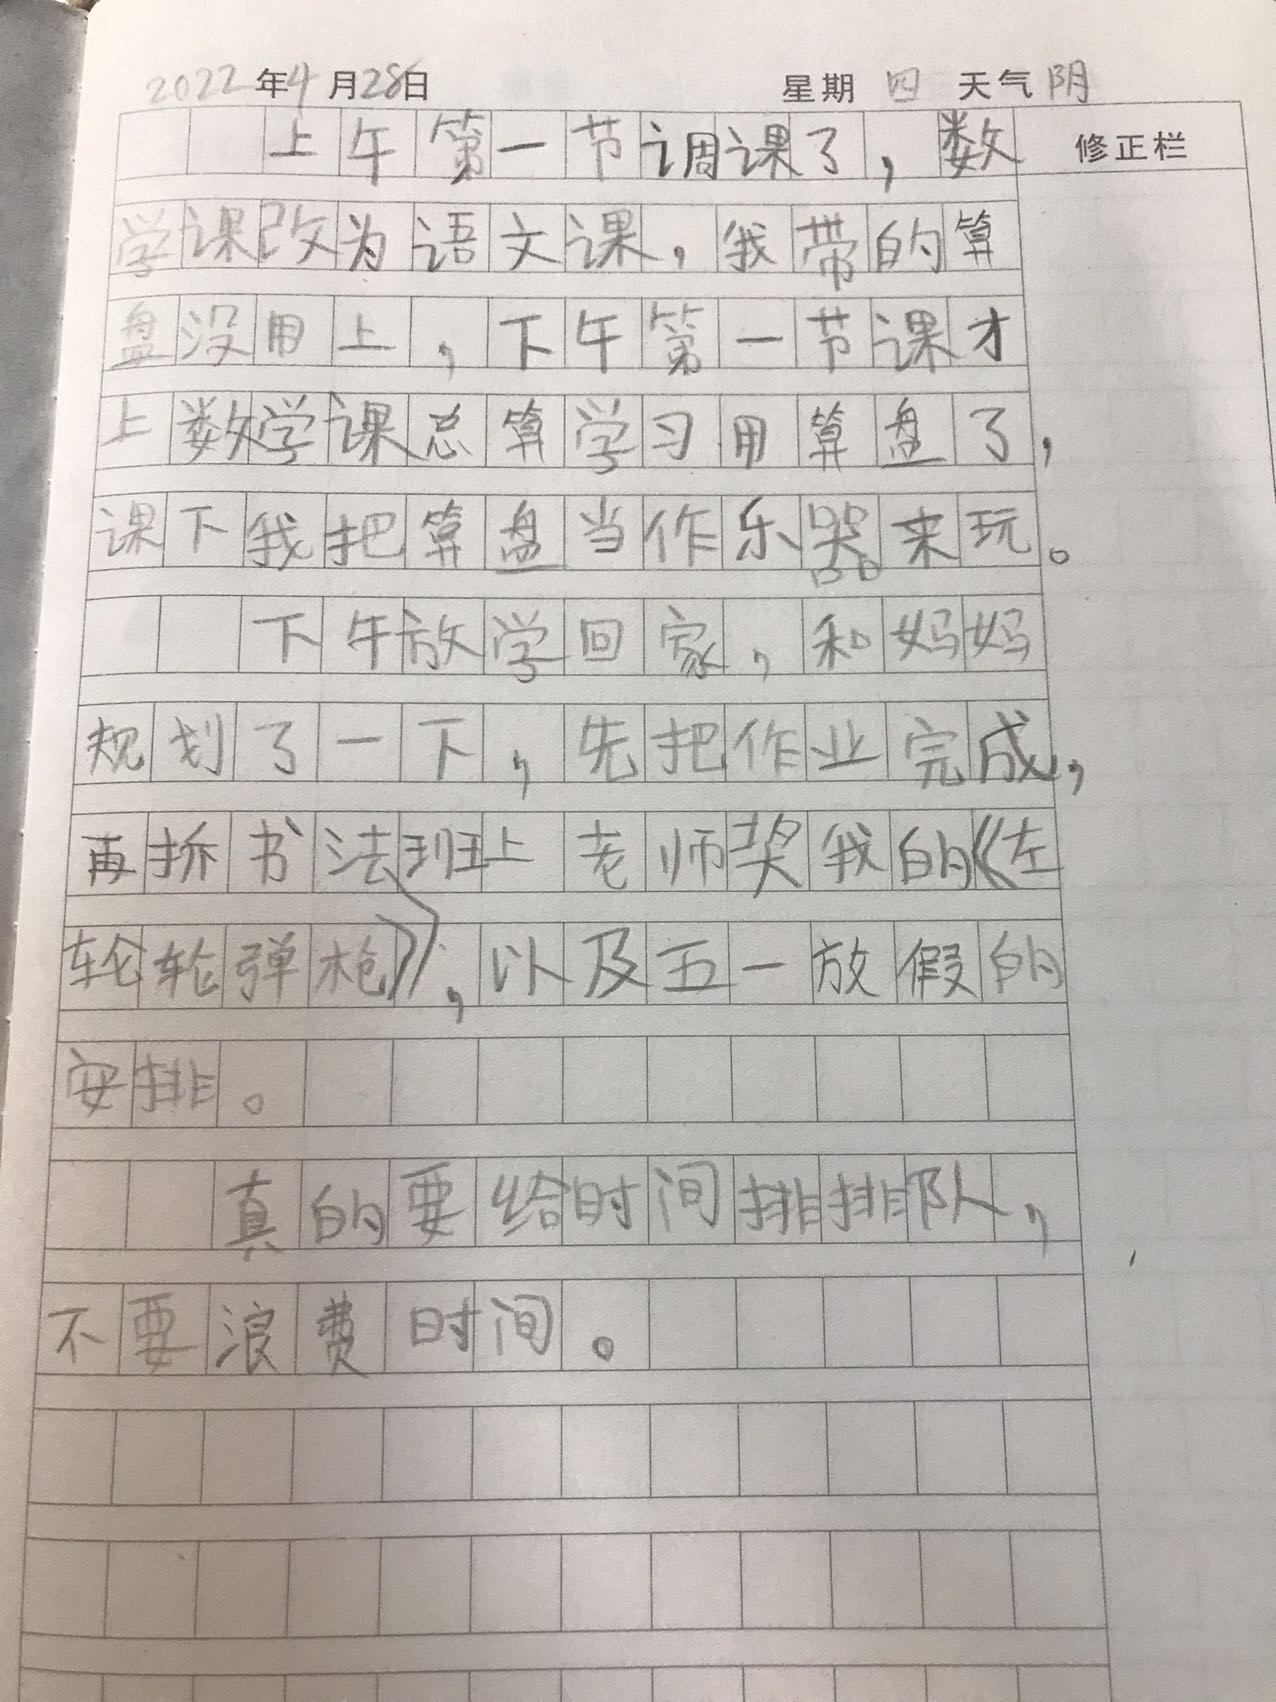 2022年4月28日 星期四 天气阴
上午第一节调课了，数
修正栏
学课改为语文课，我带的算
盘没用上，下午第一节课才
上数学课总算学习用算盘了，
课下我把算盘当作乐器来玩。
下午放学回家，和妈妈
规划了一下，先把作业完成，
再拆书法班上老师奖我的《左
轮轮弹枪》，以及五一放假的
安排。
真的要给时间排排队，
不要浪费时间。